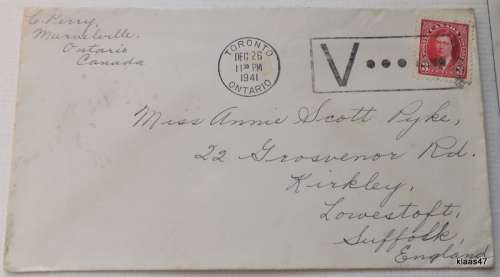 C. Perry,
Marvelville,
Ontario
Canada
TORONTO
DEC 26
11 30 PM
1941
ONTARIO
V
CANADA
Miss Annie Scott Pyke,
22 Grosvenor Rd.
Kirkley,
Lowestoft,
Suffolk,
England
klaas47